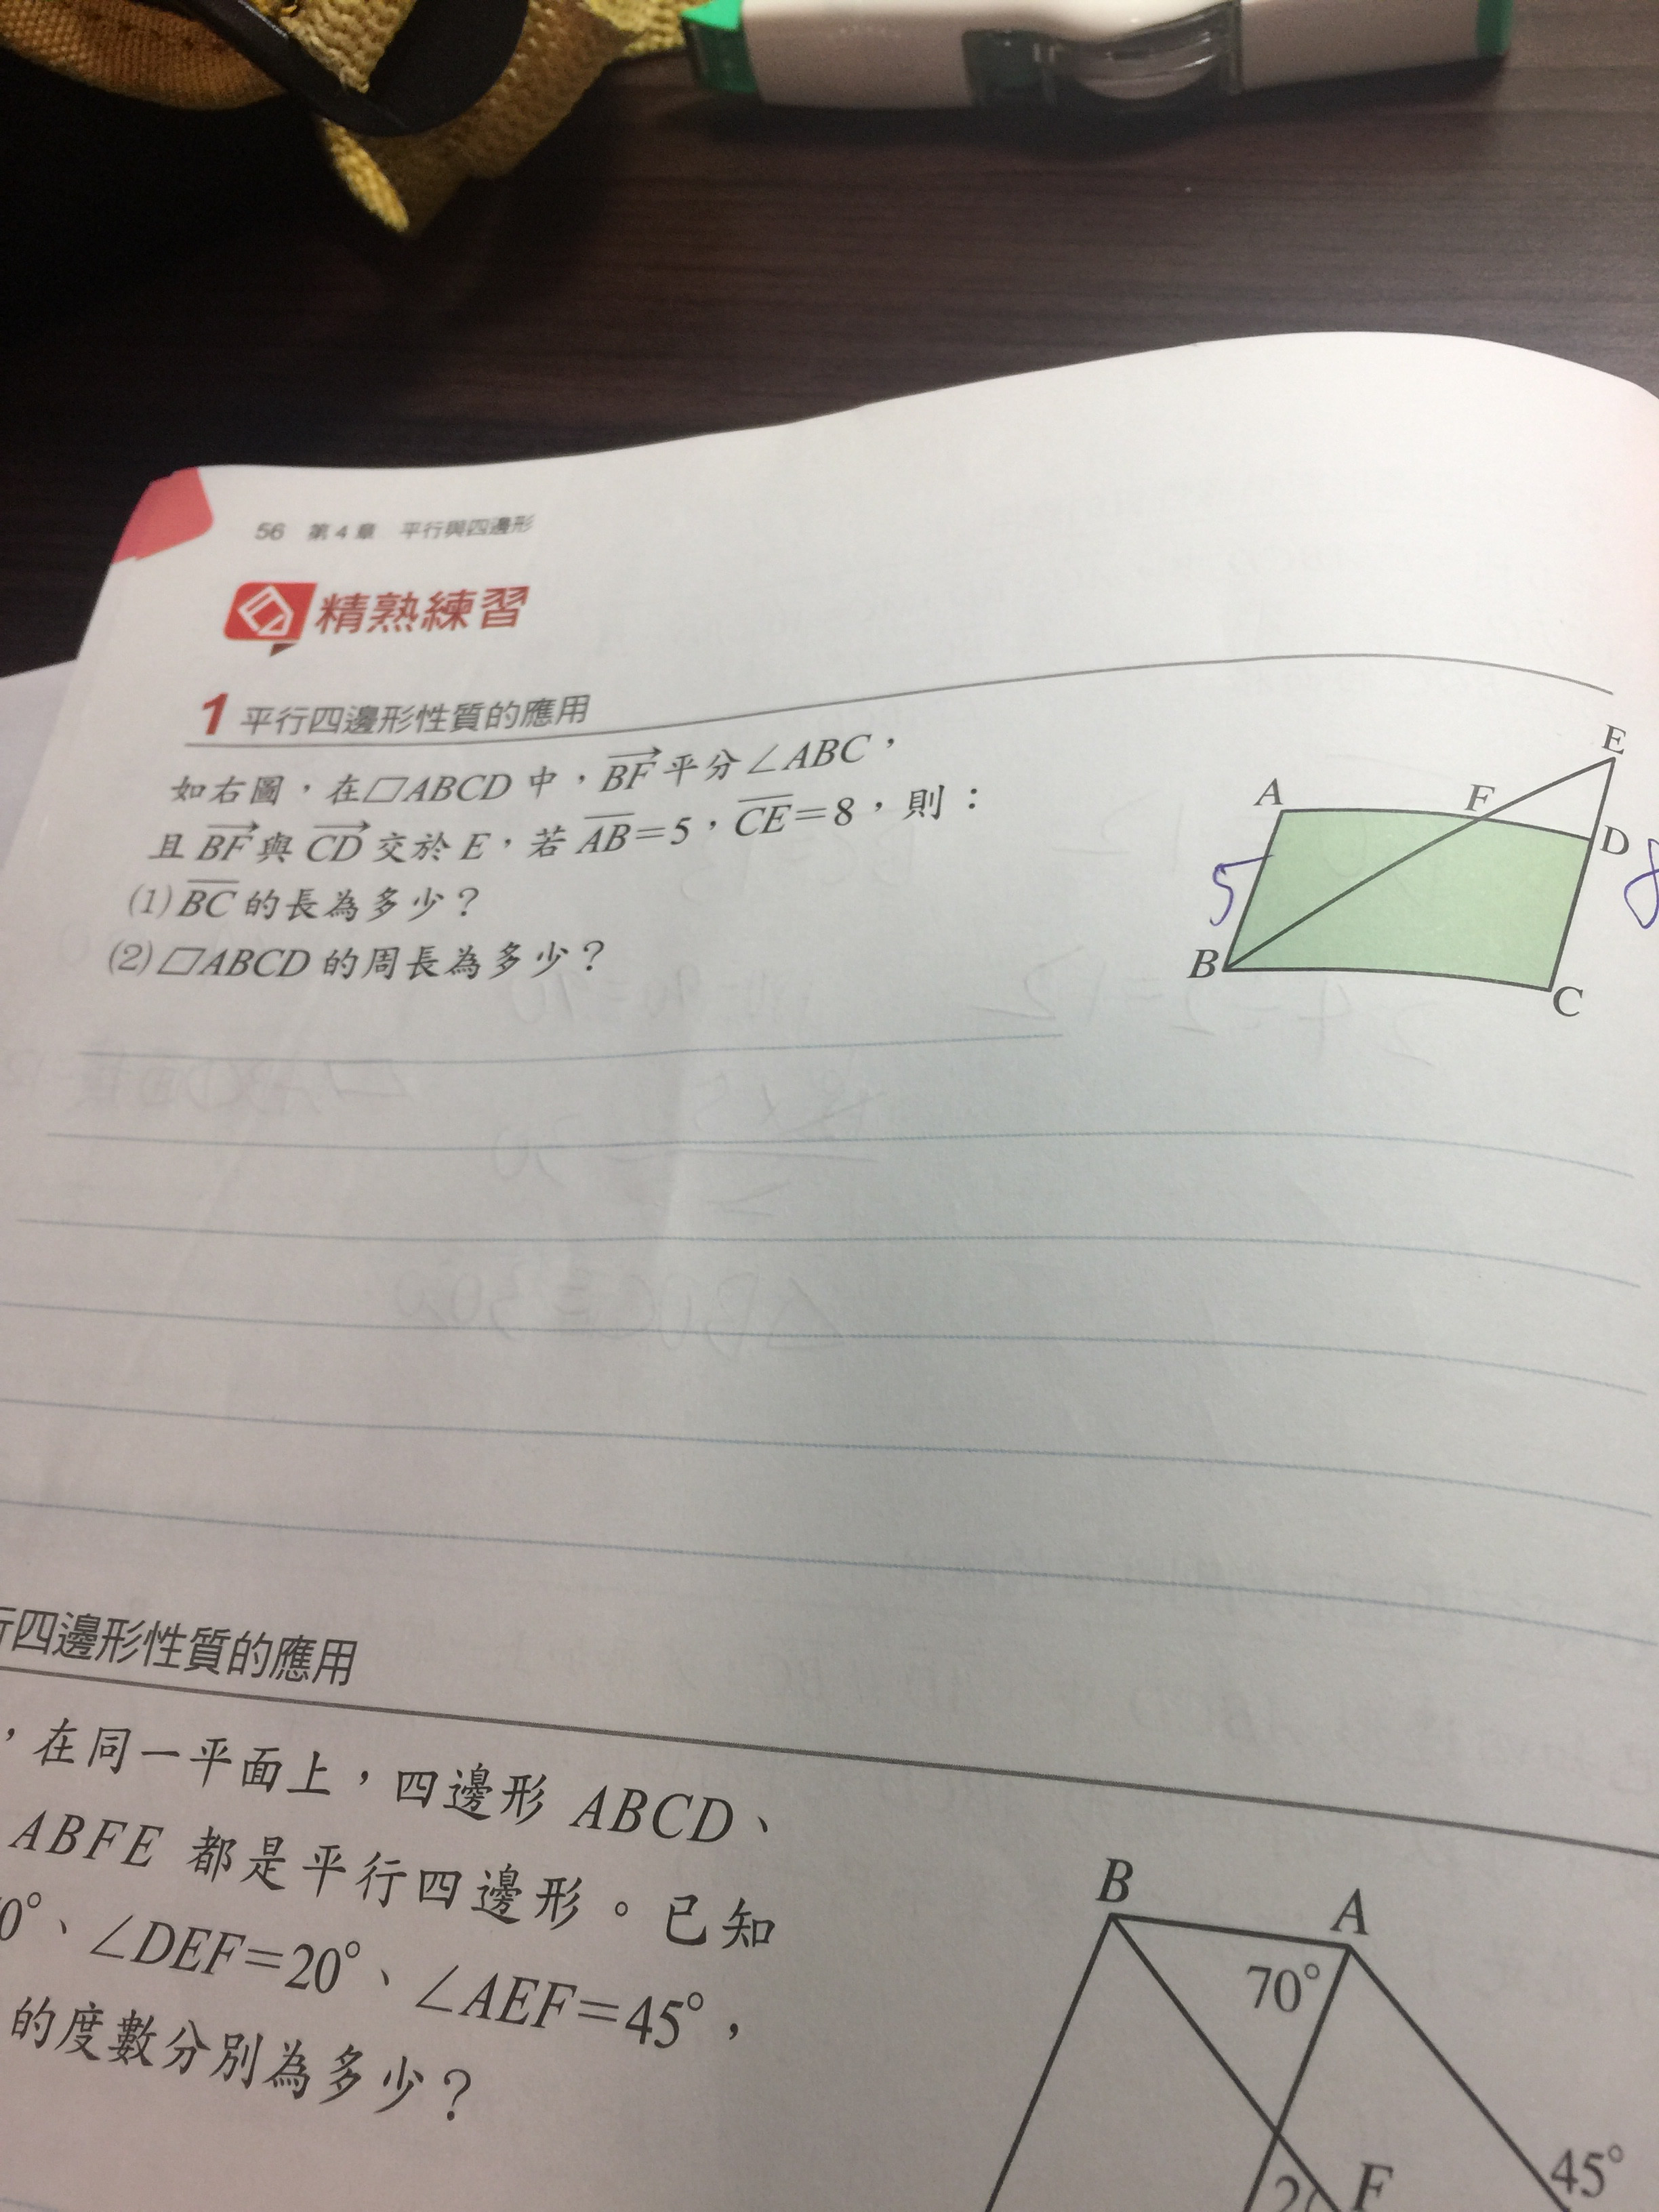 56 第4章 平行與四邊形
精熟練習
1 平行四邊形性質的應用
如右圖，在▱ABCD 中，BF平分∠ABC，
且 BF 與 CD 交於 E，若 AB=5，CE=8，則：
(1) BC 的長為多少？
(2) ▱ABCD 的周長為多少？
E
A
F
D
5
8
B
C
四邊形性質的應用
，在同一平面上，四邊形 ABCD、
ABFE 都是平行四邊形。已知
0°、∠DEF=20°、∠AEF=45°，
的度數分別為多少？
B
A
70°
F
45°